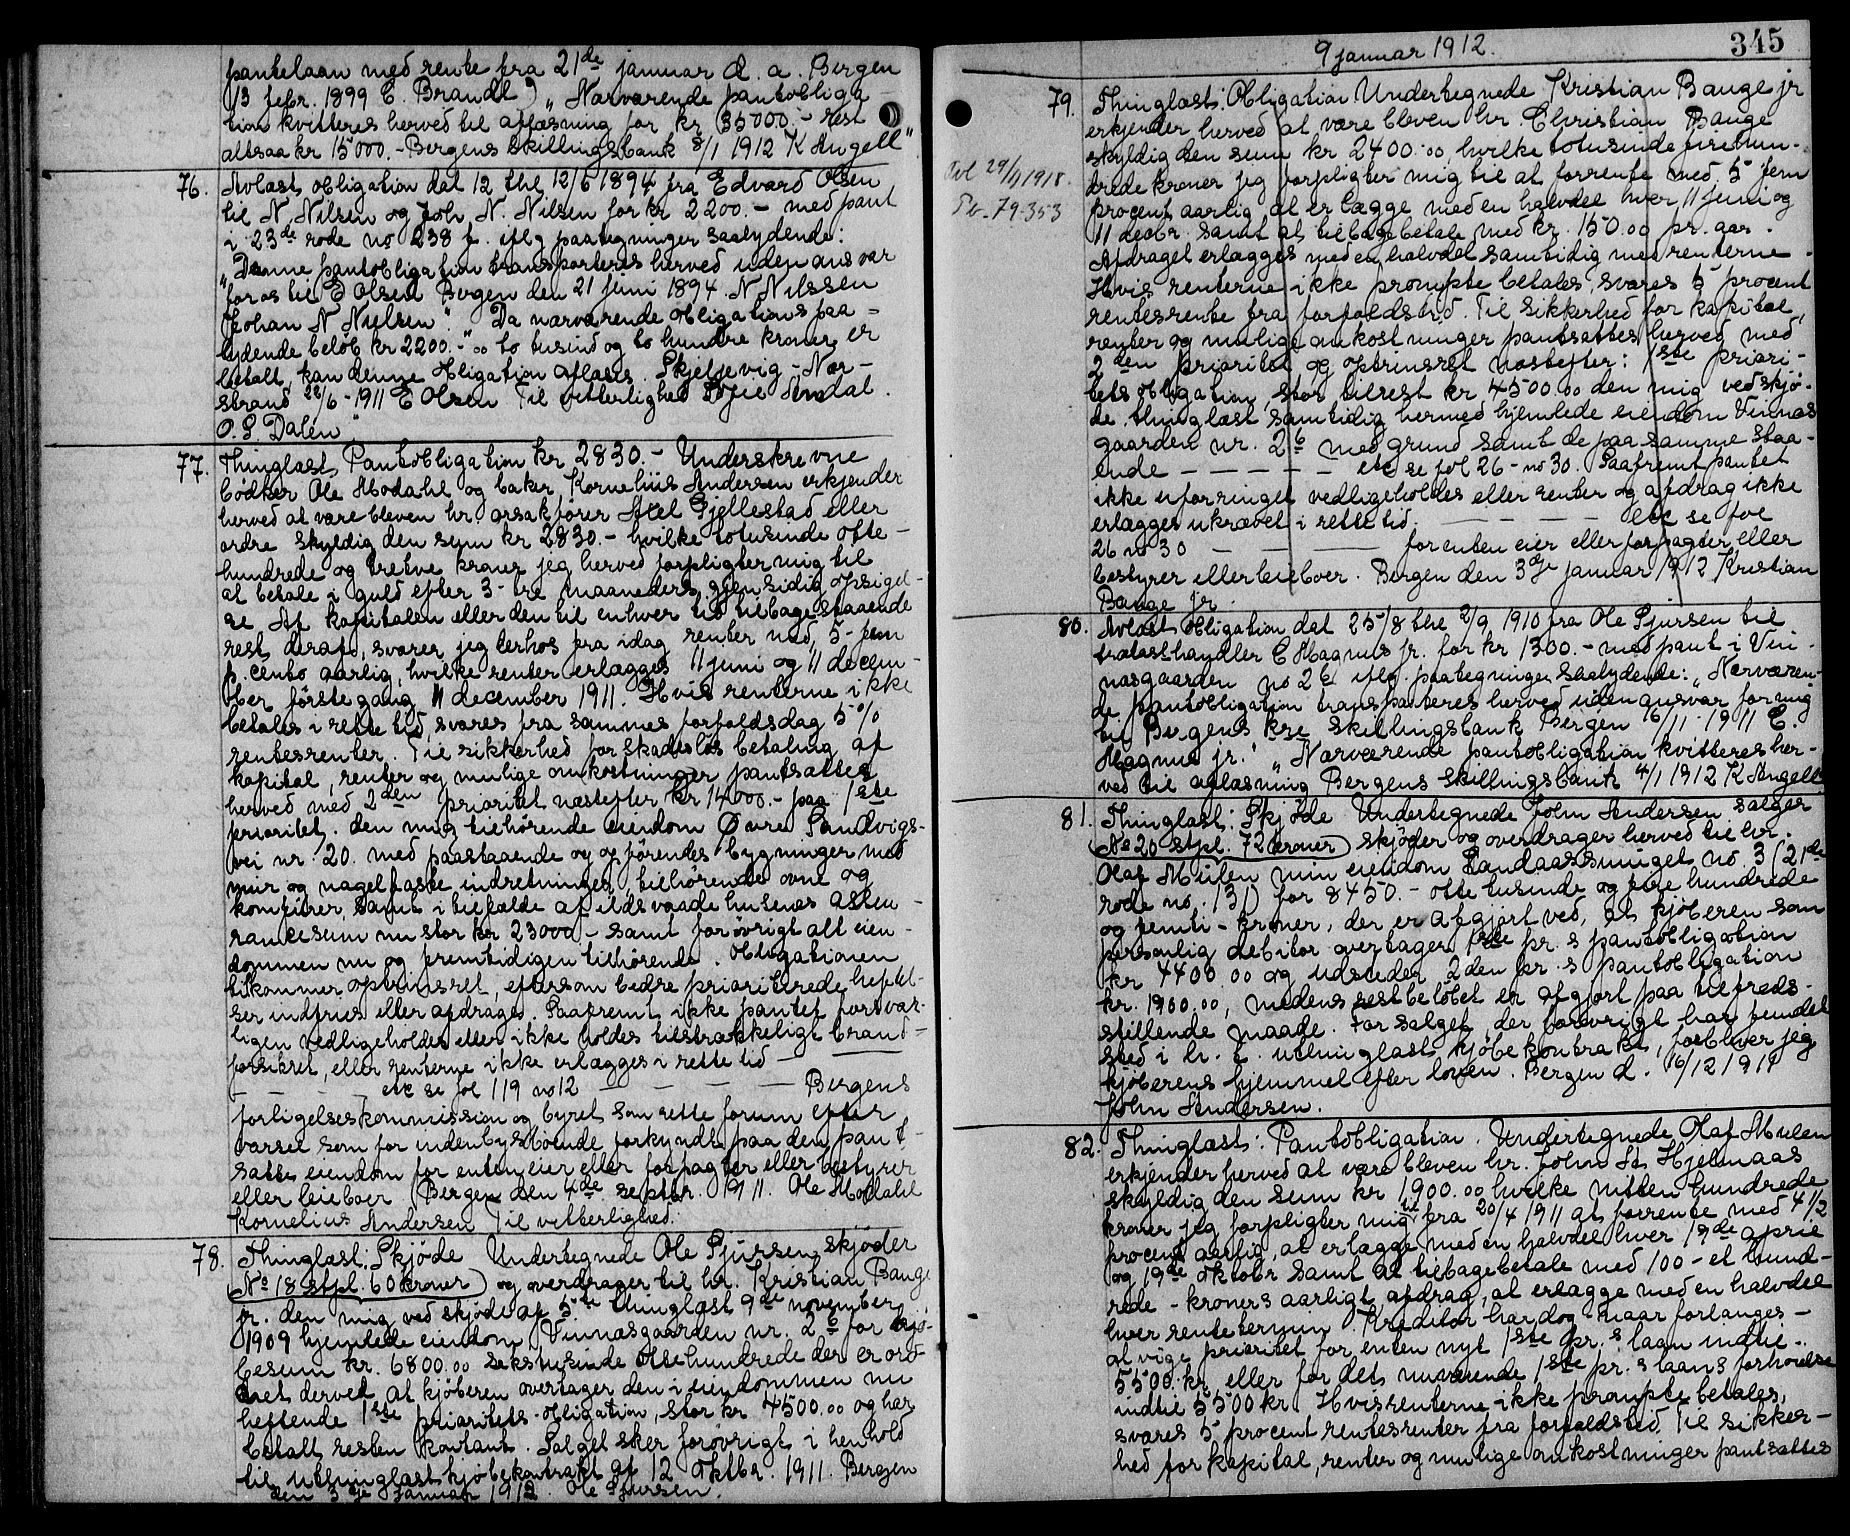 pantelaan med rente fra 21de januar d. a. Bergen
13 febr. 1899 C. Brandt" „Nærværende pantobliga-
tion kvitteres herved til aflæsning for kr 35000.- rest
altsaa kr 15000.- Bergens Skillingsbank 8/1 1912 K Angell"
76. Avlæst obligation dat 12 thl 12/6 1894 fra Edvard Olsen
til N. Nilsen og Joh. N. Nilsen for kr 2200.- med pant
i 23de rode no 238 f. iflg paategninger saalydende:
„Denne pantobligation transporteres herved uden ansvar
for os til E Olsen Bergen den 21 juni 1894. N. Nilssen
Johan N Nielsen". „Da nærværende obligations paa-
lydende beløb kr 2200.-" oo to tusind og to hundre kroner er
betalt, kan denne obligation aflæses. Skjelje vig - Nær-
strand 28/6-1911 E Olsen Til vitterlighed
O. S. Dalen"
77. Thinglæst Pantobligation kr 2830.- Underskrevne
bødker Ole Modahl og baker Kornelius Andersen erkjender
herved at være bleven hr. orsakfører Axel Gjellestad eller
ordre skyldig den sum kr 2830.- hvilke totusinde otte-
hundrede og tretve kroner jeg herved forpligter mig til
at betale i guld efter 3- tre maaneders gjensidig opsigel-
se Af kapitalen eller den til enhver tid tilbagestaaende
rest deraf, svarer jeg derhos fra idag renter med 5- fem
p. cento aarlig, hvilke renter erlægges 11 juni og 11 decem-
ber første gang 11 december 1911. Hvis renterne ikke
betales i rette tid, svares fra sammes forfaldsdag 5 %
rentesrenter. Til sikkerhed for skadesløs betaling af
kapital, renter og mulige omkostninger pantsættes
herved med 2den prioritet næstefter kr 14000.- paa 1ste
prioritet. den mig tilhørende eiendom Øvre Sandvigs-
vei nr. 20. med paastaaende og opførendes bygninger med
mur og nagelfaste indretninger, tilhørende ovne og
komfirer, samt i tilfælde af ildsvaade husenes assu-
rancesum nu stor kr 23000.- samt forøvrigt alt eien-
dommen nu og fremtidigen tilhørende. Obligationen
tilkommer optrinsret, eftersom bedre prioriterede heftel-
ser indfries eller afdrages. Saafremt ikke pantet forsvar-
ligen vedligeholdes eller ikke holdes tilstrækkeligt brand-
forsikret, eller renterne ikke erlægges i rette tid — — —
— — — — etc se fol 119 no 12 — — — — — Bergens
forligelseskommission og byret som rette forum efter
varsel som for indenbys boende forkyndt paa den pant-
satte eiendom for enten eier eller forpagter eller bestyrer
eller leieboer. Bergen den 4de septbr. 1911. Ole Modahl
Kornelius Andersen Til vitterlighed.
78. Thinglæst: Skjøde Undertegnede Ole Sjursen skjøder
No 18 stpl. 60 kroner og overdrager til hr. Kristian Bauge
jr. den mig ved skjøde af 5te thinglæst 9de november
1909 hjemlede eiendom Vinnæsgaarden nr. 2 b for kjø-
besum kr. 6800.00 sekstusinde ottehundrede der er ord-
net derved at kjøberen overtager den i eiendommen nu
heftende 1ste prioritets obligation, stor kr 4500.00 og har
betalt resten kontant. Salget sker forøvrigt i henhold
til uthinglæst kjøbekontrakt af 12 oktbr. 1911. Bergen
den 3je januar 1912 Ole Sjursen.
9 januar 1912.
345
79. Thinglæst: Obligation Undertegnede Kristian Bauge jr
erkjender herved at være bleven hr. Christian Bauge
skyldig den sum kr 2400.00, hvilke totusinde firehun-
drede kroner jeg forpligter mig til at forrente med 5 fem
procent aarlig, at erlægge med en halvdel hver 11 juni og
11 decbr. samt at tilbagebetale med kr. 150.00 pr. aar.
Afdraget erlægges med en halvdel samtidig med renterne.
Hvis renterne ikke prompte betales, svares 5 procent
rentesrente fra forfaldstid. Til sikkerhed for kapital,
renter og mulige omkostninger pantsættes herved med
2den prioritet og optrinsret næstefter: 1ste priori-
tets obligation stor tilrest kr. 4500.00 den mig ved skjø-
de thinglæst samtidig hermed hjemlede eiendom Vinnæs
gaarden nr. 2 b med grund samt de paa samme staa-
ende — — — — — etc se fol 26 - no 30. Saafremt pantet
ikke uforringet vedligeholdes eller renter og afdrag ikke
erlægges ukrævet i rette tid. — — — — — etc se fol
26 no 30 — — — — for enten eier eller forpagter eller
bestyrer eller leieboer. Bergen den 3dje januar 1912 Kristian
Bauge jr.
Avl 29/4 1918.
Pb. 79-353
80. Avlæst obligation dat 25/8 thl 2/9 1910 fra Ole Sjursen til
trælasthandler C Magnus jr. for kr 1300.- med pant i Vin-
næsgaarden no 2 b iflg. paategninger saalydende: „Nærværen-
de pantobligation transporteres herved uden ansvar for mig
til Bergens kre Skillingsbank Bergen 16/11-1911 C.
Magnus jr." „Nærværende pantobligation kvitteres her-
ved til aflæsning Bergens Skillingsbank 4/1 1912 K Angell"
81. Thinglæst: Skjøde Undertegnede John Andersen sælger
No 20 stpl. 72 kroner skjøder og overdrager herved til hr.
Olaf Mülen min eiendom Landaassvinget no. 3 (21de
rode no. 131) for 8450.- otte tusinde og fire hundrede
og femti - kroner, der er afgjort ved, at kjøberen som
personlig debitor overtager 1ste pr. s pantobligation
kr 4400.00 og udsteder 2den pr. s pantobligation
kr. 1900.00, medens restbeløbet er afgjort paa tilfreds-
stillende maade. For salget, der forøvrigt har fundet
sted i h. t. uthinglæst kjøbekontrakt, forbliver jeg
kjøberens hjemmel efter loven. Bergen d. 16/12 1911
John Andersen.
82. Thinglæst: Pantobligation. Undertegnede Olaf Mülen
erkjender herved at være bleven hr. John St. Hjelmaas
skyldig den sum kr 1900.00 hvilke nitten hundrede
kroner jeg forpligter mig til fra 20/4 1911 at forrente med 4 1/2
procent aarlig, at erlægge med en halvdel hver 19de april
og 19de oktobr samt at tilbagebetale med 100 - et hund-
rede - kroners aarligt afdrag, at erlægge med en halvdel
hver rentetermin. Kreditor har dog naar forlanges -
at vige prioritet for enten nyt 1ste pr. s laan indtil
5500 kr. eller for det nuværende 1ste pr. s laans forhøielse
indtil 5500 kr. Hvis renterne ikke prompte betales,
svares 5 procent rentesrenter fra forfaldstid. Til sikker-
hed for kapital, renter og mulige omkostninger pantsættes